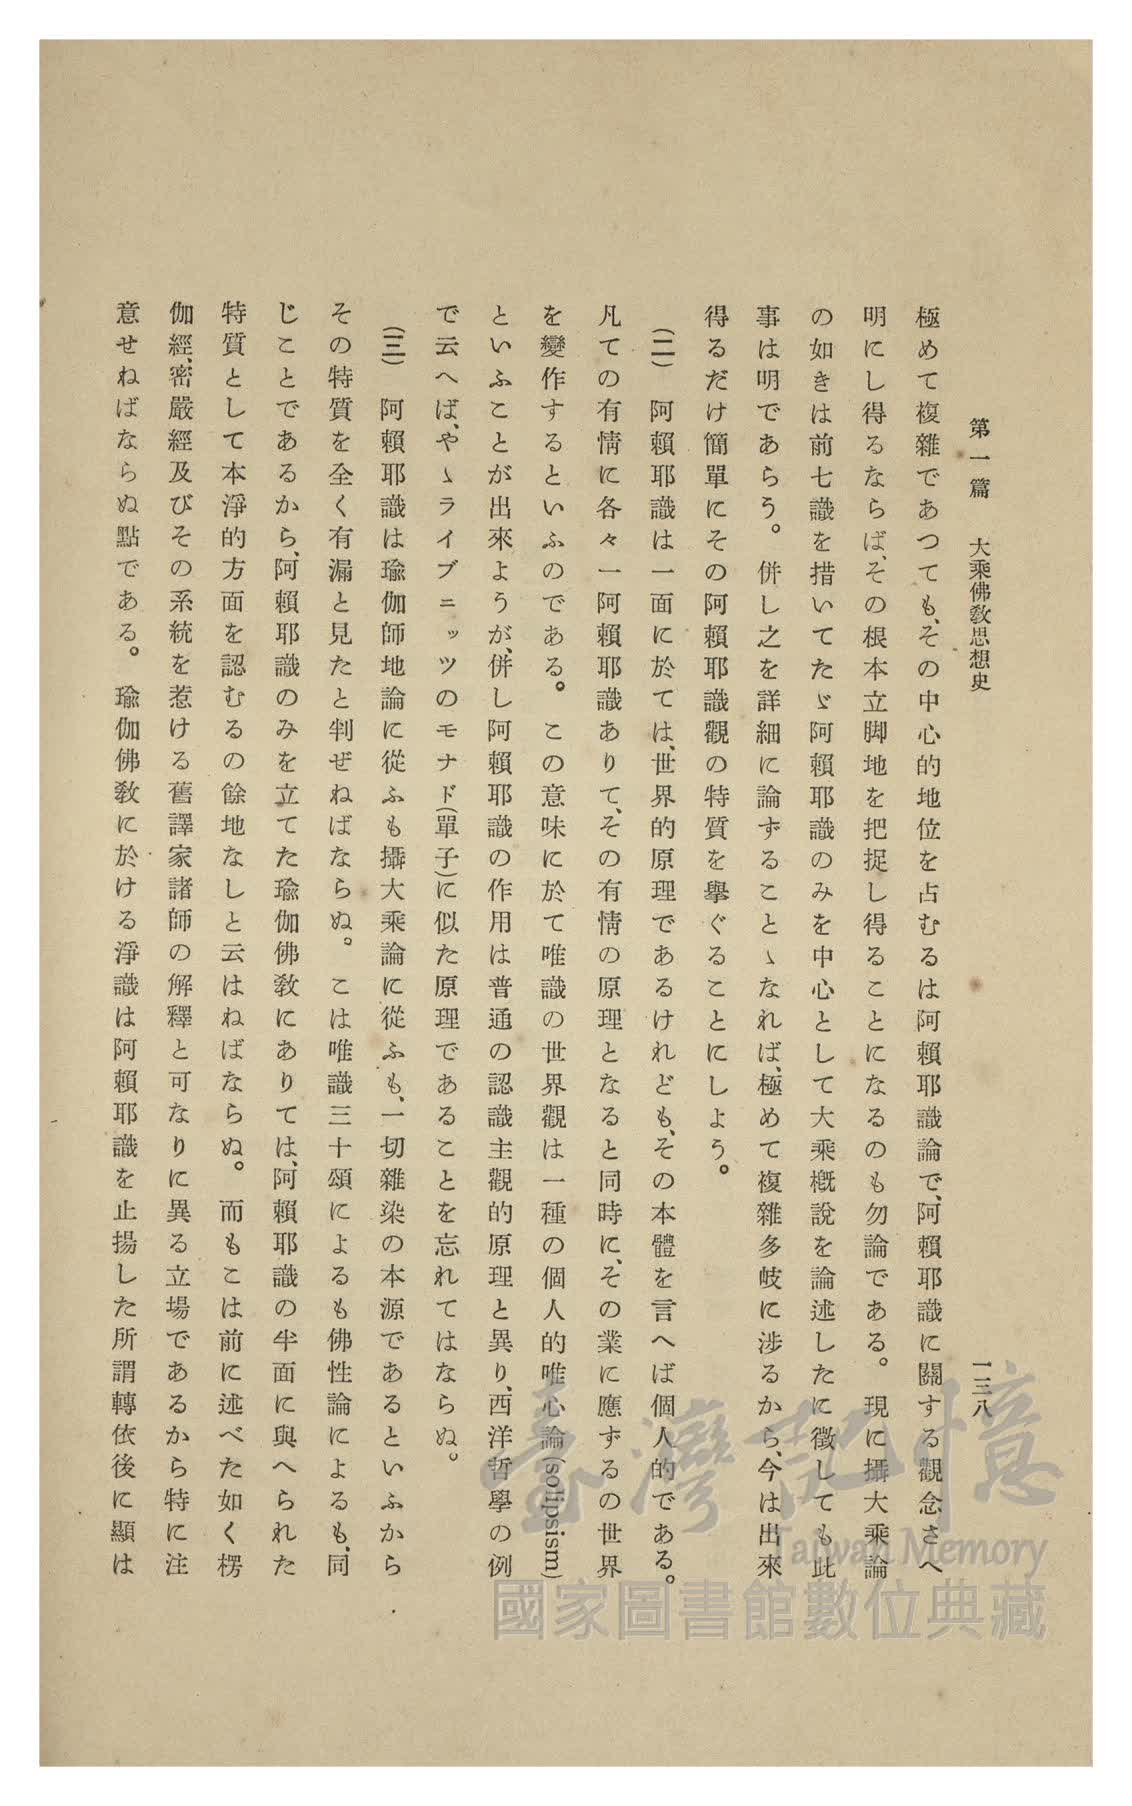 第一篇　大乘佛敎思想史
一三八
極めて複雜であつても、その中心的地位を占むるは阿賴耶識論で、阿賴耶識に關する觀念さへ
明にし得るならば、その根本立脚地を把捉し得ることになるのも勿論である。現に攝大乘論
の如きは前七識を措いてたゞ阿賴耶識のみを中心として大乘槪說を論述したに徵しても此
事は明であらう。併し之を詳細に論ずることゝなれば、極めて複雜多岐に涉るから、今は出來
得るだけ簡單にその阿賴耶識觀の特質を擧ぐることにしよう。
(二)　阿賴耶識は一面に於ては、世界的原理であるけれども、その本體を言へば個人的である。
凡ての有情に各々一阿賴耶識ありて、その有情の原理となると同時に、その業に應ずるの世界
を變作するといふのである。この意味に於て唯識の世界觀は一種の個人的唯心論(solipsism)
といふことが出來ようが、併し阿賴耶識の作用は普通の認識主觀的原理と異り、西洋哲學の例
で云へば、やゝライブニッツのモナド(單子)に似た原理であることを忘れてはならぬ。
(三)　阿賴耶識は瑜伽師地論に從ふも攝大乘論に從ふも、一切雜染の本源であるといふから
その特質を全く有漏と見たと判ぜねばならぬ。こは唯識三十頌によるも佛性論によるも、同
じことであるから、阿賴耶識のみを立てた瑜伽佛敎にありては、阿賴耶識の半面に與へられた
特質として本淨的方面を認むるの餘地なしと云はねばならぬ。而もこは前に述べた如く楞
伽經、密嚴經及びその系統を惹ける舊譯家諸師の解釋と可なりに異る立場であるから特に注
意せねばならぬ點である。瑜伽佛敎に於ける淨識は阿賴耶識を止揚した所謂轉依後に顯は
臺灣記憶
Taiwan Memory
國家圖書館數位典藏